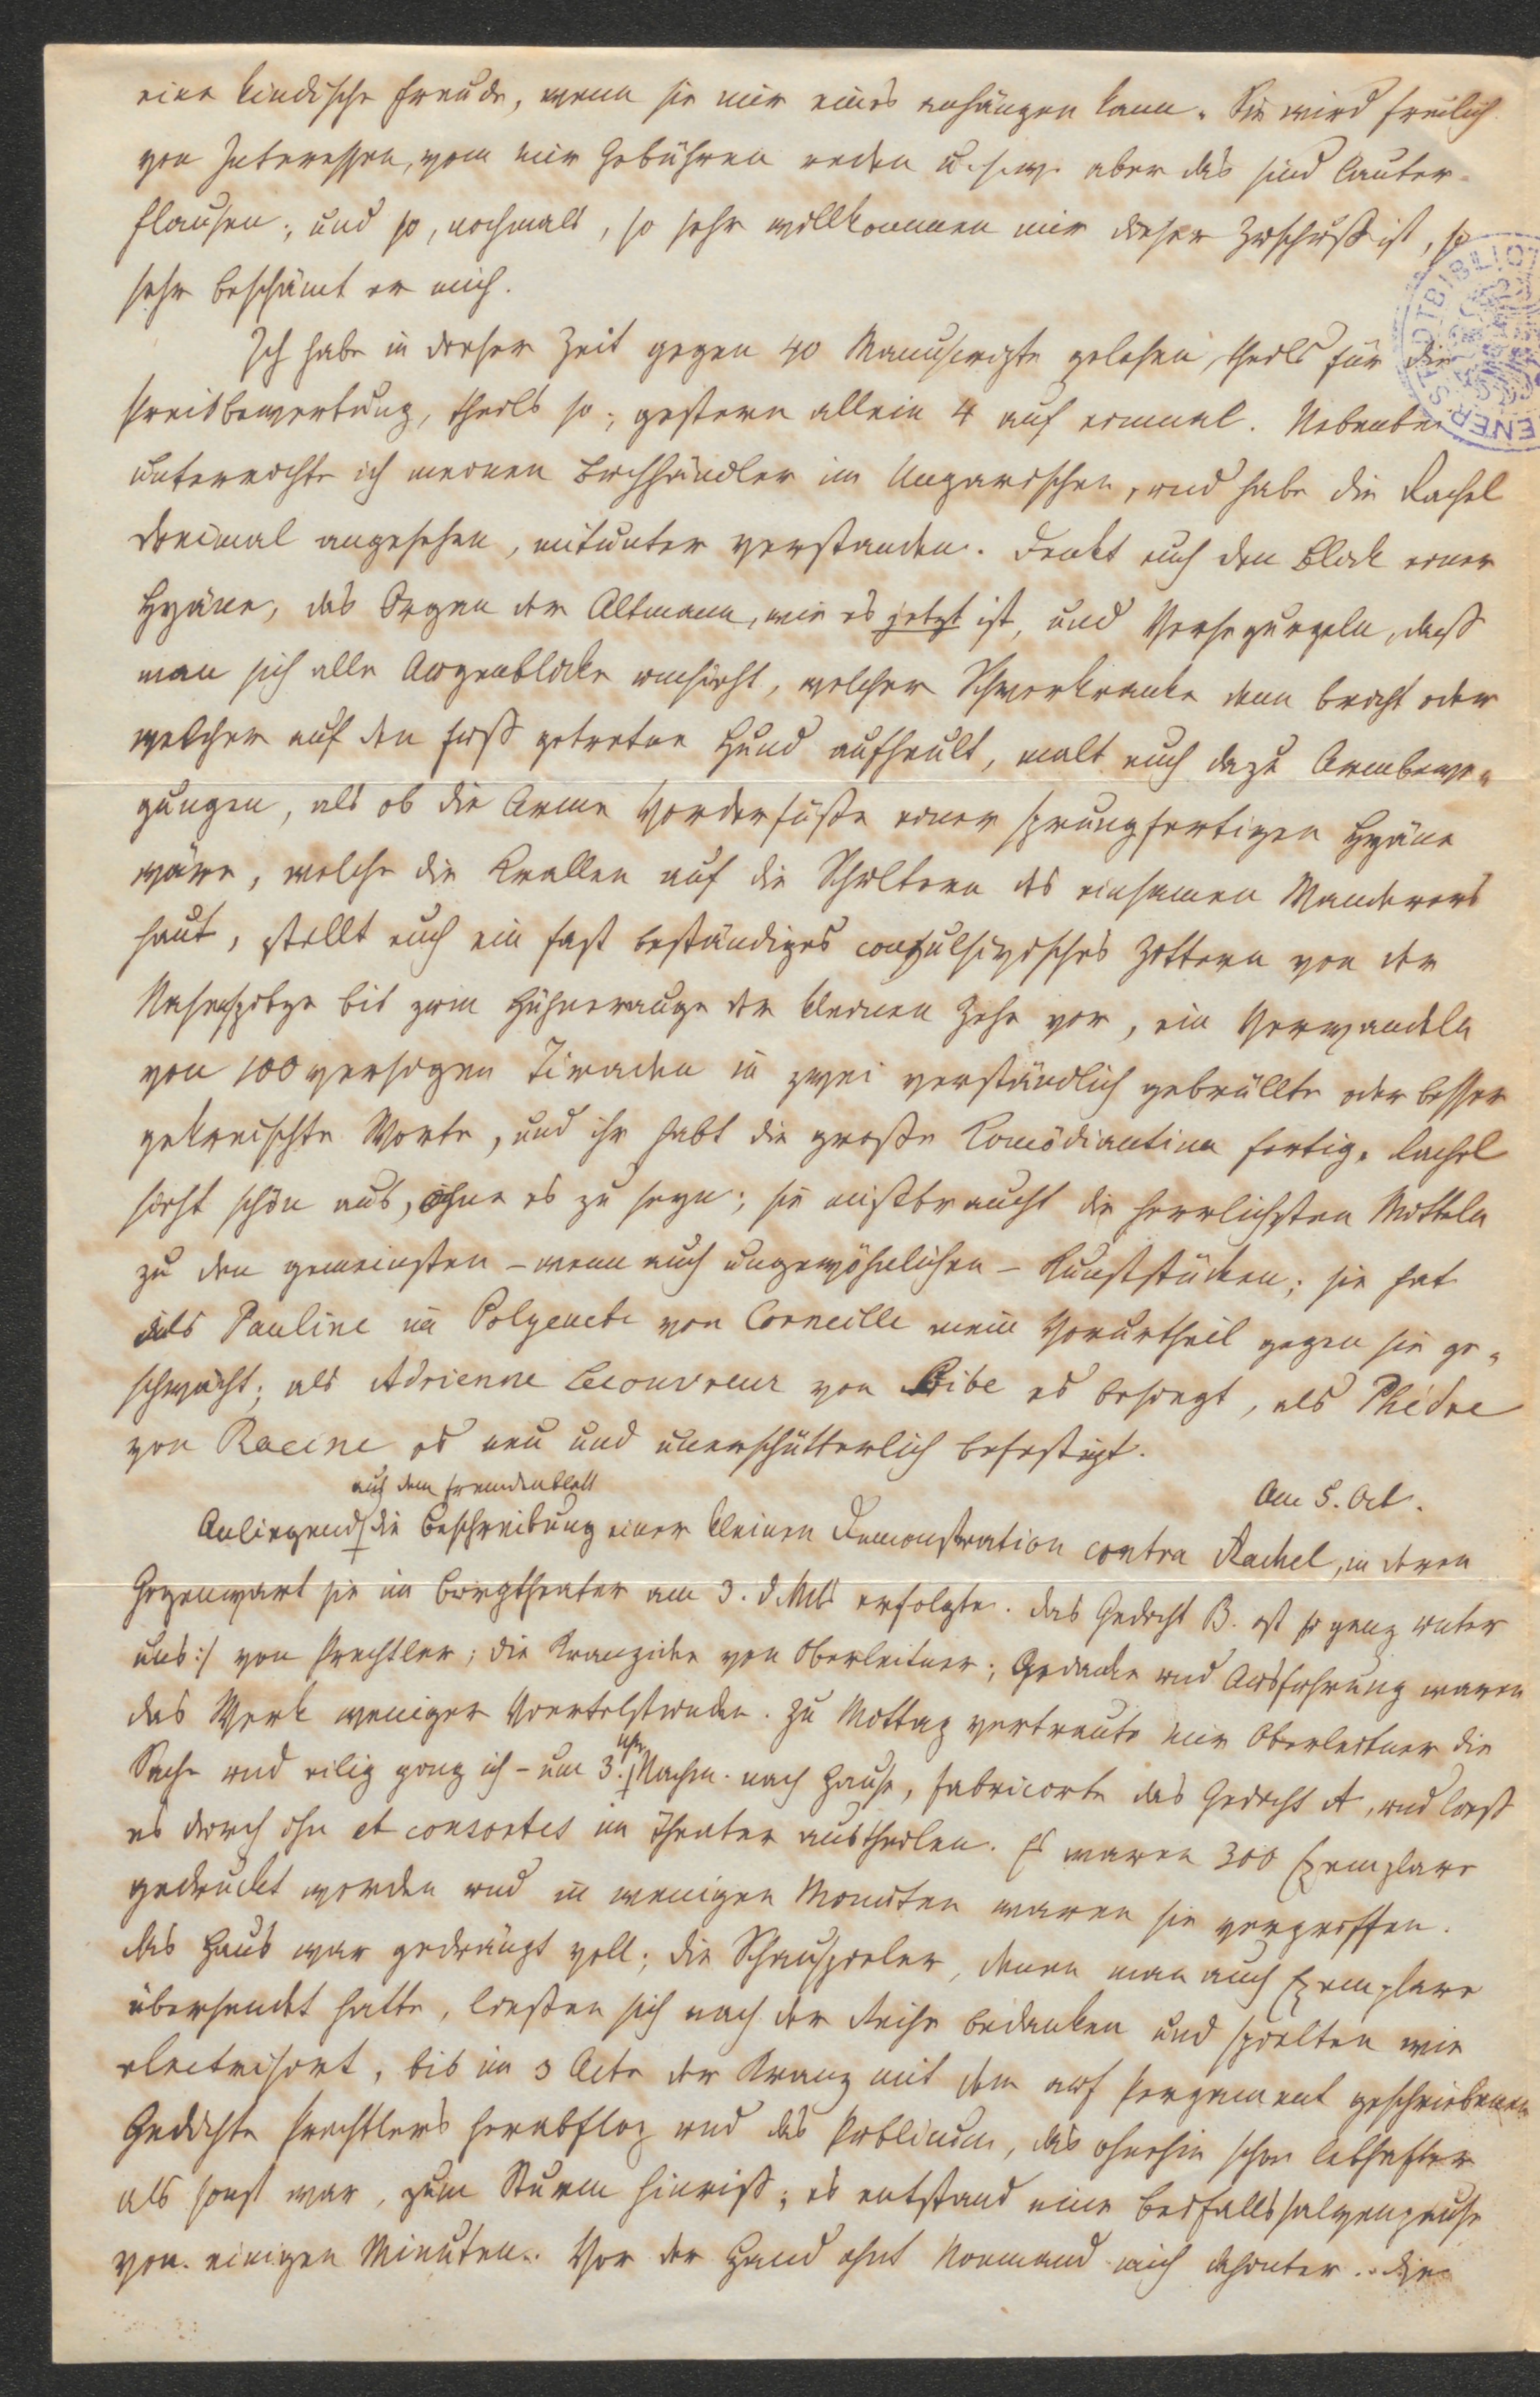 eine kindische Freude, wenn sie mir eines anhängen kann. Sie wird freilich
von Interessen, vom mir Gebühren reden u.s.w. aber das sind lauter
Flausen; und so, nochmals, so sehr willkommen mir dieser Zuschuß ist, so
sehr beschämt er mich.
Ich habe in dieser Zeit gegen 40 Manuscripte gelesen, theils für die
Preisbewerbung, theils so; gestern allein 4 auf einmal. Nebenbei
unterrichte ich meinen Buchhändler im Ungarischen, und habe die Rachel
dreimal angesehen, mitunter verstanden. Denkt euch den Blick einer
Hyäne, das Organ der Altmann, wie es jetzt ist, und Versegurgeln, daß
man sich alle Augenblicke umsieht, welcher Schwerkranke denn bricht oder
welcher auf den Fuß getretene Hund aufheult, malt euch dazu Armbewe-
gungen, als ob die Arme Vorderfüße einer sprungfertigen Hyäne
wäre, welche die Krallen auf die Schultern des einsamen Wanderers
haut, stellt euch ein fast beständiges convulsivisches Zittern von der
Nasenspitze bis zum Hühnerauge der kleinen Zehe vor, ein Verwandeln
von 100 versigen Tiraden in zwei verständlich gebrüllte oder besser
gekreischte Worte, und ihr habt die große Komödiantinn fertig. Rachel
sieht schön aus, ohne es zu seyn; sie mißbraucht die herrlichsten Mitteln
zu den gemeinsten – wenn auch ungewöhnlichen – Kunststücken; sie hat
als Pauline in Polyeucte von Corneille mein Vorurtheil gegen sie ge-
schwächt; als Adrienne Lecouvreur von Scribe es besiegt, als Phèdre
von Racine es neu und unerschütterlich befestigt.
Am 5. Oct.
aus dem Fremdenblatt
Anliegend die Beschreibung einer kleinen Demonstration contra Rachel, in deren
Gegenwart sie im Burgtheater am 3. d. Mts erfolgte. Das Gedicht B. ist ganz unter
uns :/ von Prechtler; die Kranzidee von Oberleitner; Gedanke und Ausführung waren
das Werk weniger Viertelstunden. Zu Mittag vertraute mir Oberleitner die
Sache und eilig ging ich – um 3. Uhr Nachm. nach Hause, fabricirte das Gedicht A, und ließ
es durch ihn et consortes im Theater austheilen. Es waren 300 Exemplare
gedruckt worden und in wenigen Minuten waren sie vergriffen.
Das Haus war gedrängt voll; die Schauspieler, denen man auch Exemplare
übersendet hatte, ließen sich nach der Reihe bedanken und spielten wie
electrisirt, bis im 3 Acte der Kranz mit dem auf Pergament geschriebenen
Gedichte Prechtlers herabflog und das Publicum, das ohnehin schon lebhafter
als sonst war, zum Sturm hinriß; es entstand eine Beifallssalvenpause
von einigen Minuten. Vor der Hand ahnt Niemand mich dahinter. Die